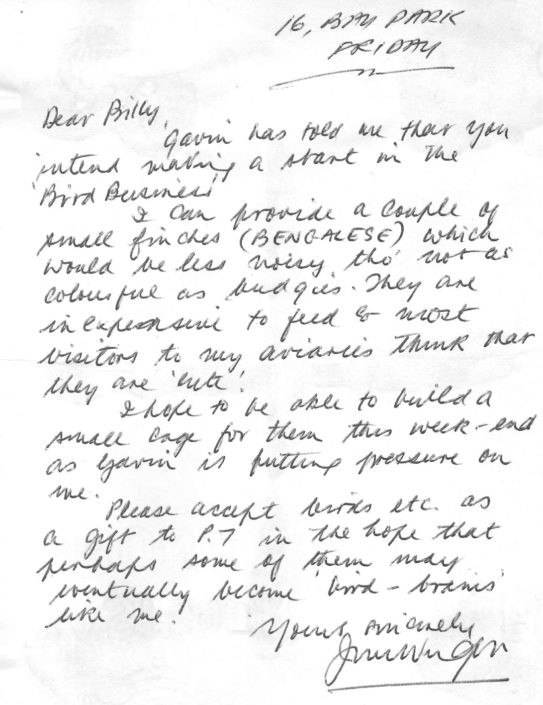 16, BAY PARK
FRIDAY
Dear Billy,
Gavin has told me that you
intend making a start in the
'Bird Business'
I can provide a couple of
small finches (BENGALESE) which
would be less noisy, tho' not as
colourful as budgies. They are
inexpensive to feed & most
visitors to my aviaries think that
they are 'cute'.
I hope to be able to build a
small cage for them this week-end
as Gavin is putting pressure on
me.
Please accept birds etc. as
a gift to P.7 in the hope that
perhaps some of them may
eventually become 'bird-brains'
like me!
Yours sincerely